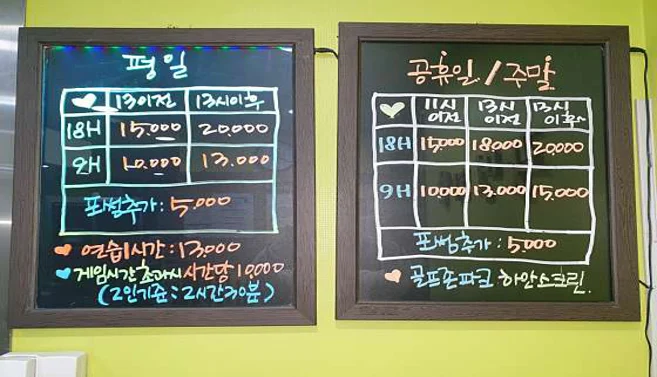 평일
♥ 13이전 13시이후
18H 15.000 20.000
9H 10.000 13.000
포썸추가: 5.000
♥ 연습1시간: 13.000
♥ 게임시간초과시 시간당 10,000
(2인기준: 2시간30분)
공휴일/주말
♥ 11시이전 13시이전 13시이후
18H 15.000 18.000 20.000
9H 10.000 13.000 15.000
포썸추가: 5.000
♥ 골프존파크 하안스크린.